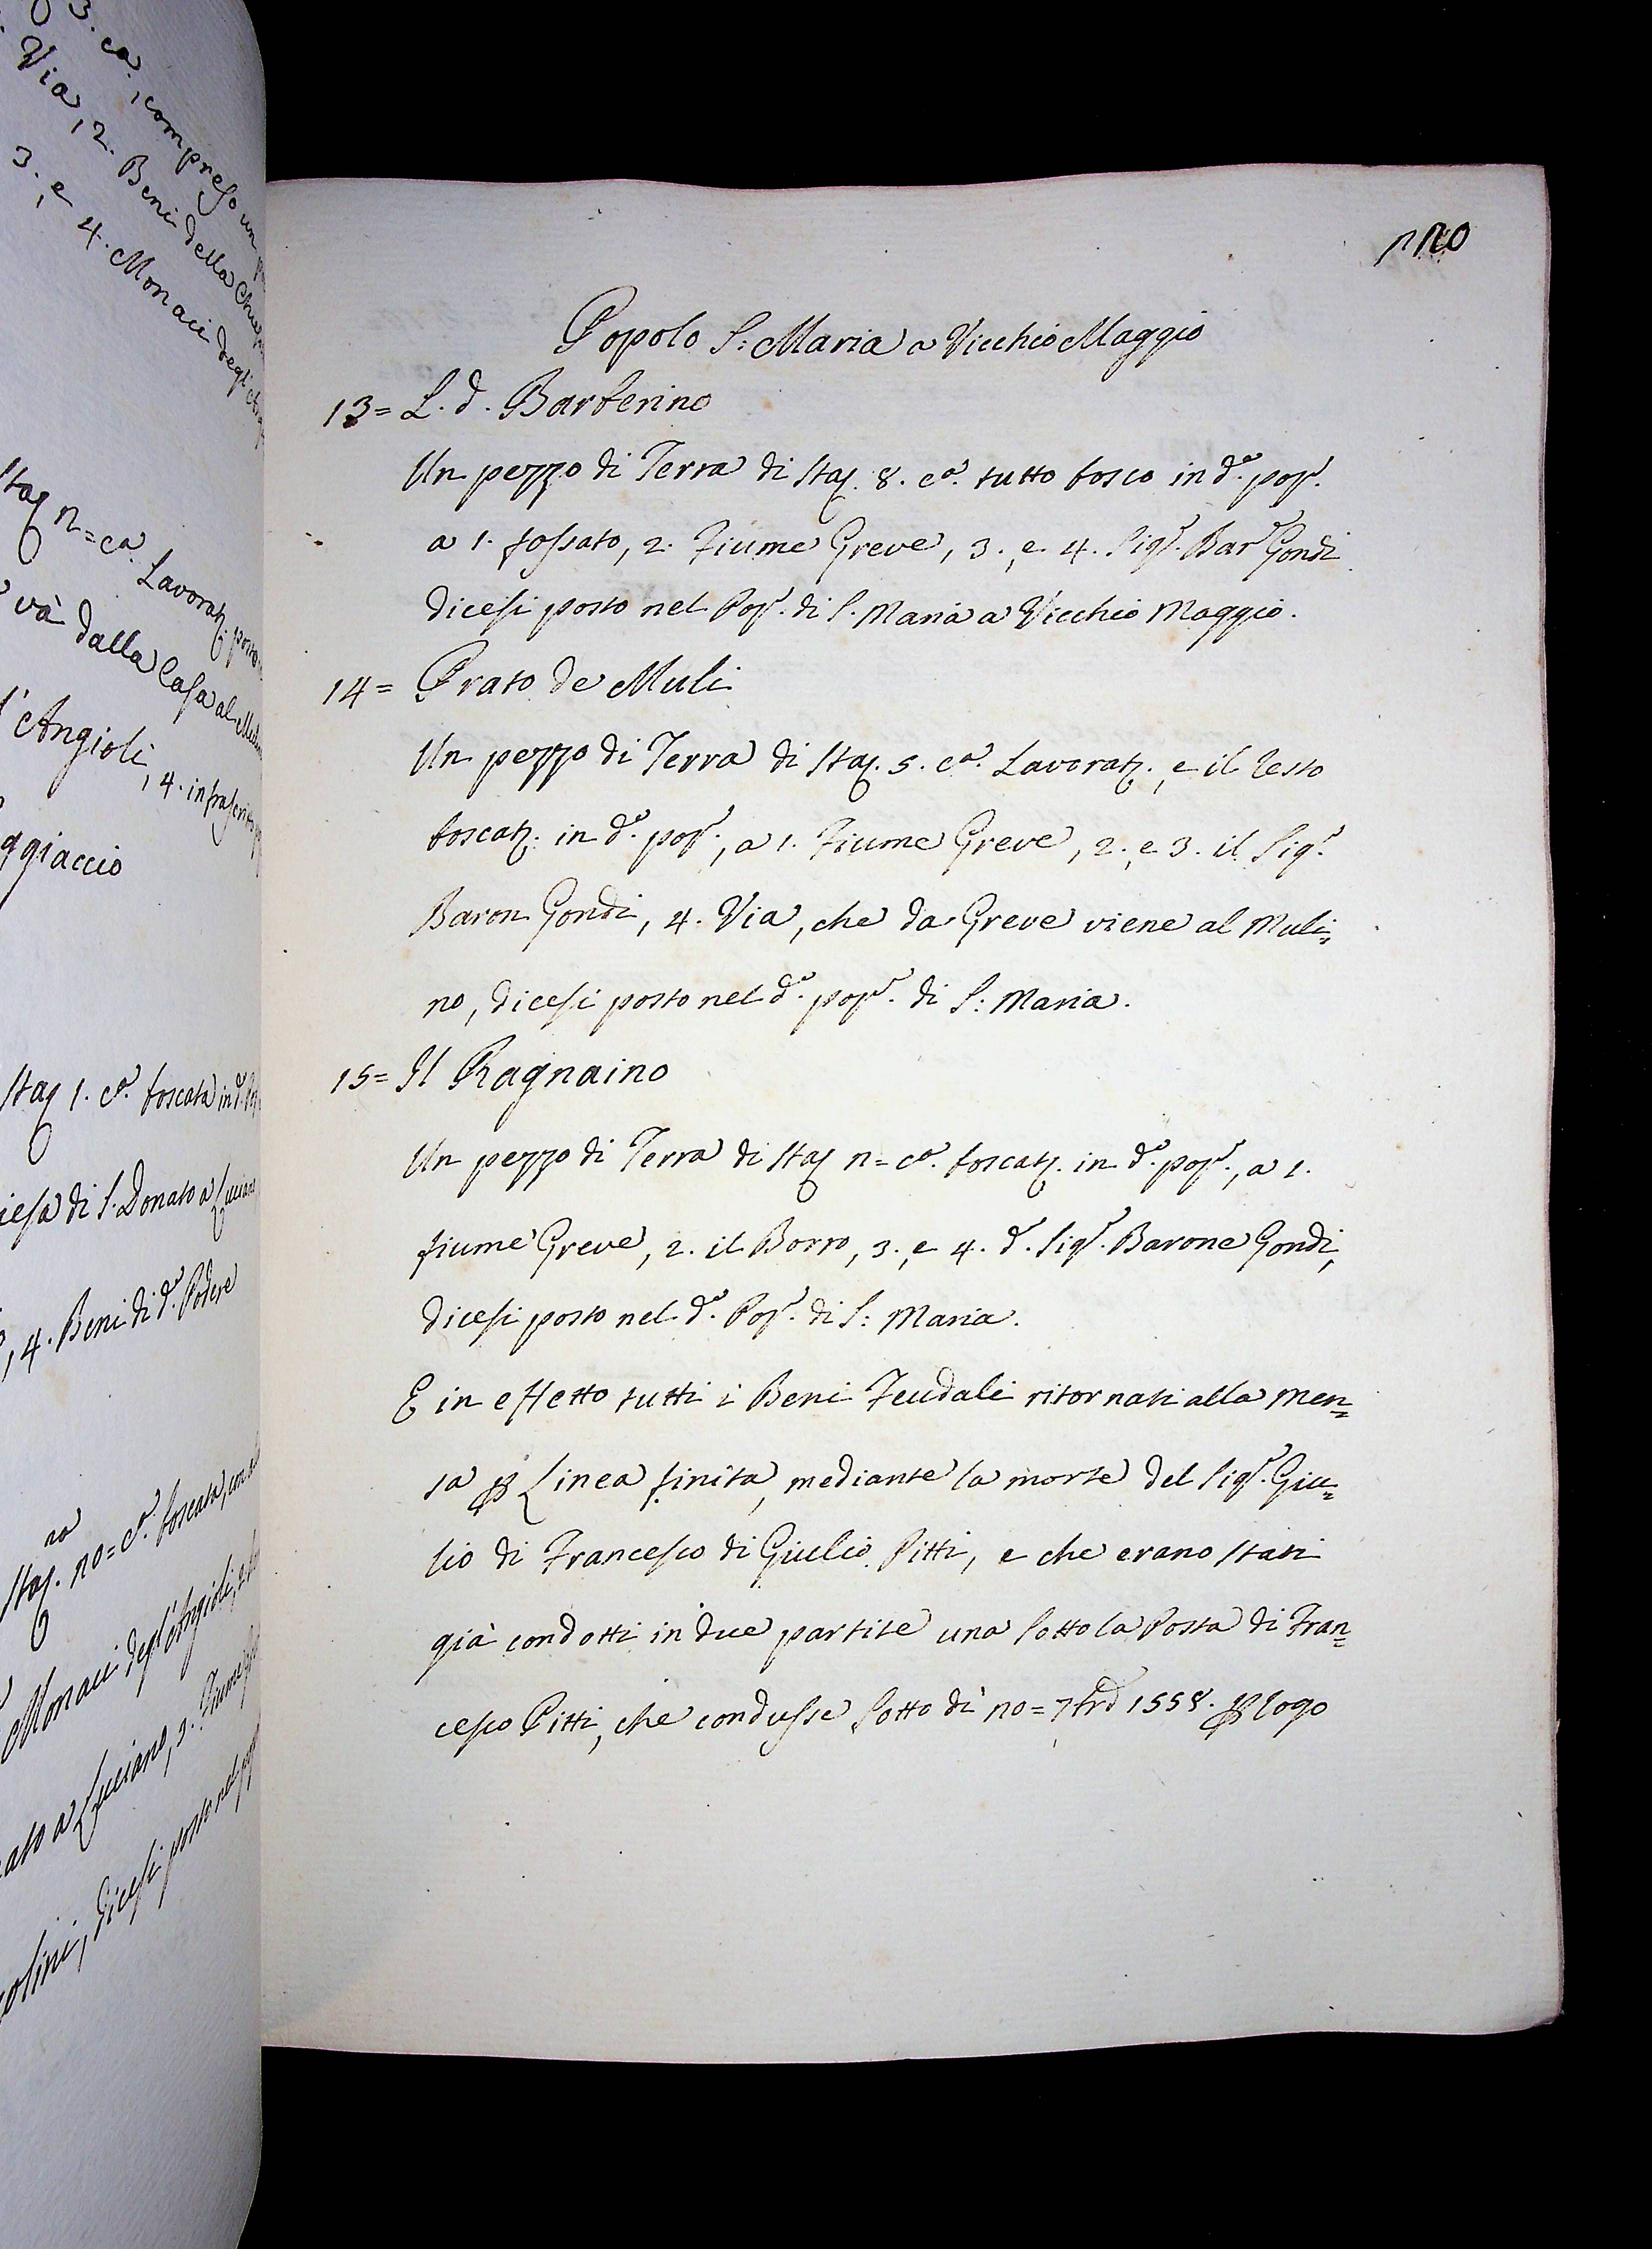 3. ca., compreso un
Via, 2. Beni della Chiesa
3., e 4. Monaci degl'
Staj n= ca. Lavorat. posto
và dalla Casa al
Angioli, 4. infrascritto
ggiaccio
Staj 1. ca. boscata in d.o
iesa di S. Donato a Luciano
, 4. Beni di d.o Podere
Staj. no= ca. boscata, con
Monaci degl'Angioli,
ato a Luciano, 3. Fiume
olini, dicesi posto nel
110
Popolo S: Maria a Vicchio Maggio
13= L. d. Barberino
Un pezzo di Terra di Staj. 8. ca. tutto bosco in d.o pop.o
a 1. fossato, 2. Fiume Greve, 3., e 4. Sig.r Bar.e Gondi
dicesi posto nel Pop.o di S. Maria a Vicchio Maggio.
14= Prato de Muli
Un pezzo di Terra di Staj. 5. ca. Lavorat., e il resto
boscat. in d.o pop.o, a 1. Fiume Greve, 2., e 3. il Sig.r
Baron Gondi, 4. Via, che da Greve viene al Muli=
no, dicesi posto nel d.o pop.o di S: Maria.
15= Il Ragnaino
Un pezzo di Terra di Staj n= ca. boscat. in d.o pop.o, a 1.
fiume Greve, 2. il Borro, 3., e 4. d.o Sig.r Barone Gondi,
dicesi posto nel d.o Pop.o di S: Maria.
E in effetto tutti i Beni Feudali ritornati alla Men=
sa p Linea finita, mediante la morte del Sig.r Giu=
lio di Francesco di Giulio Pitti, e che erano stati
già condotti in due partite una sotto la Posta di Fran=
cesco Pitti, che condusse sotto dì no= 7bre 1558. p rogo